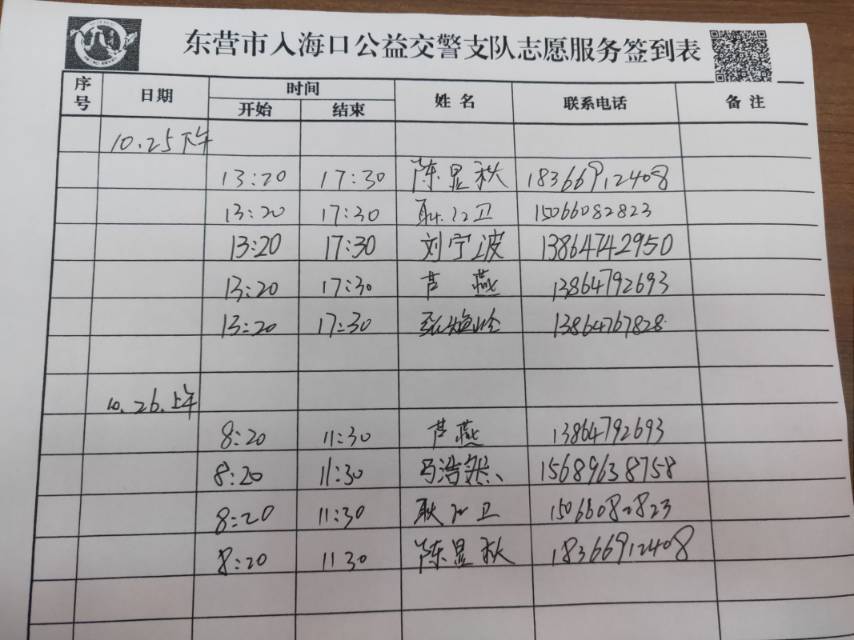 东营市入海口公益交警支队志愿服务签到表
序号 日期 时间 姓名 联系电话 备注
开始 结束
10.25下午
13:20 17:30 陈显秋 18366912408
13:20 17:30 耿卫 15066082823
13:20 17:30 刘宁波 13864742950
13:20 17:30 芦燕 13864792693
13:20 17:30 张 13864767828
10.26.上午
8:20 11:30 芦燕 13864792693
8:20 11:30 马浩然 15689638758
8:20 11:30 耿卫 15066082823
8:20 11 30 陈显秋 18366912408